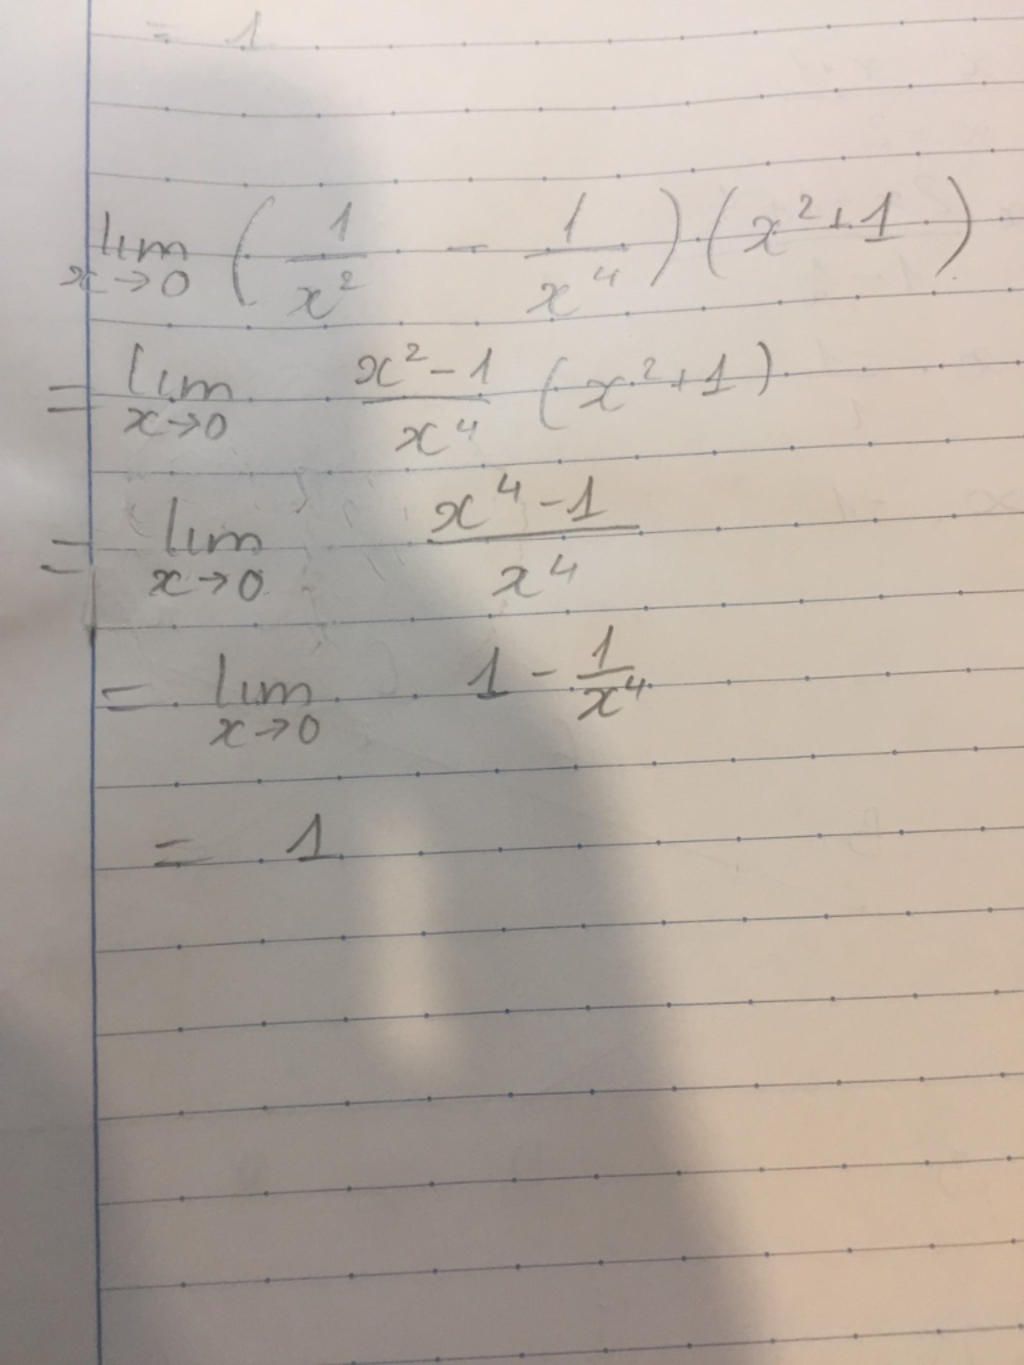 = 1
lim x→0 (1/x² - 1/x⁴)(x²+1)
= lim x→0 x²-1/x⁴ (x²+1)
= lim x→0 x⁴-1/x⁴
= lim x→0 1 - 1/x⁴
= 1